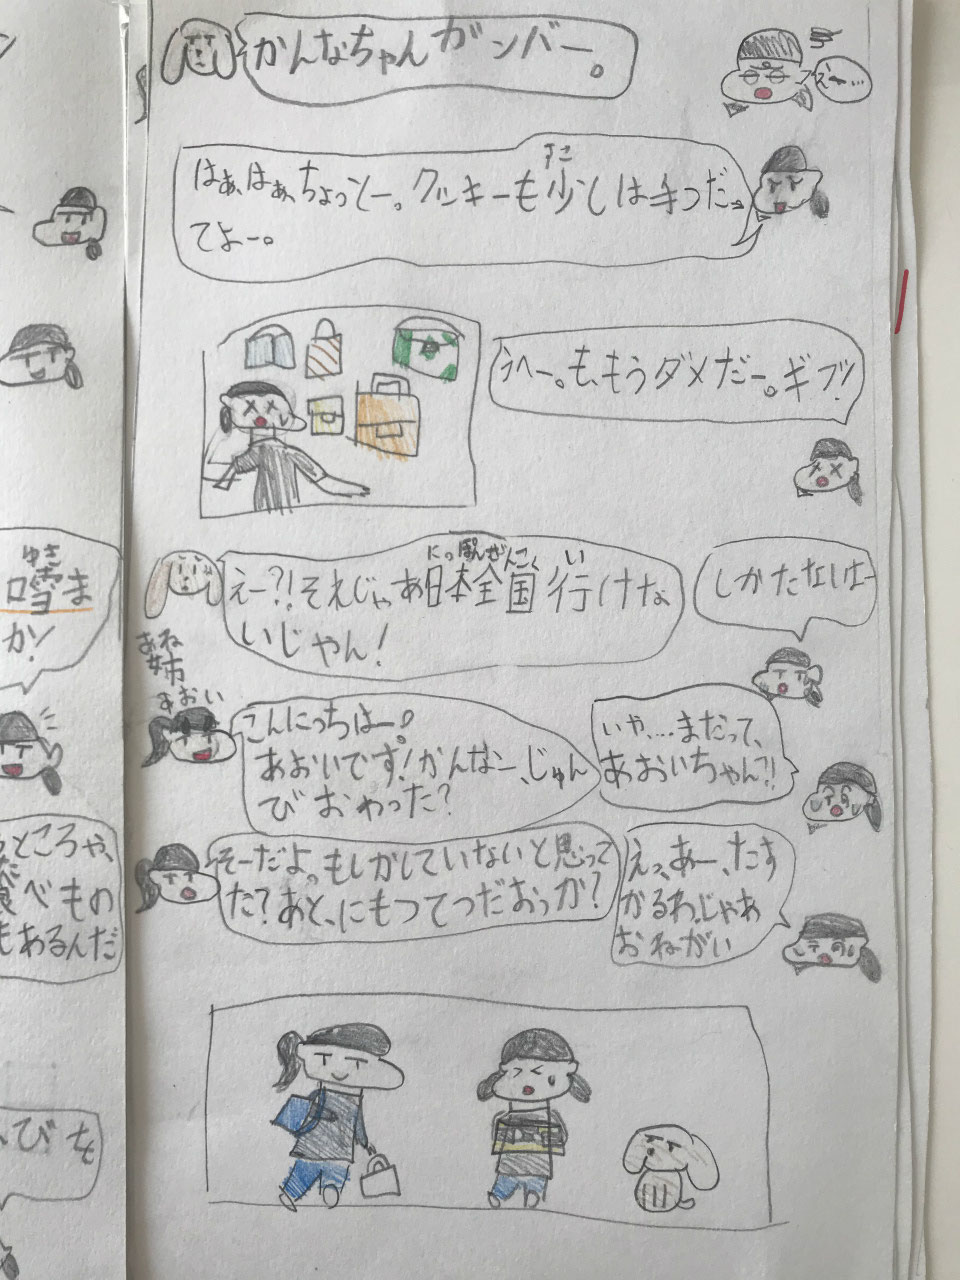 かんなちゃんガンバー。
はぁ、はぁ、ちょっとー。クッキーも少しは手つだっ
すこ
てよー。
うへー。も、もうダメだー。ギブ!!
えー?!そえじゃあ日本全国行けな
にっぽんぜんこく い
いじゃん!
しかたないはー
あね
姉
あおい
こんにっちはー!
あおいです!かんなー、じゅん
びおわった?
いや....まだって、
あおいちゃん?!
そーだよ。もしかしていないと思って
た?あと、にもつてつだおぅか?
えっ、あー、たす
かるわ、じゃあ
おねがい
ゆき
雪ま
か!
ところや、
食べもの
もあるんだ